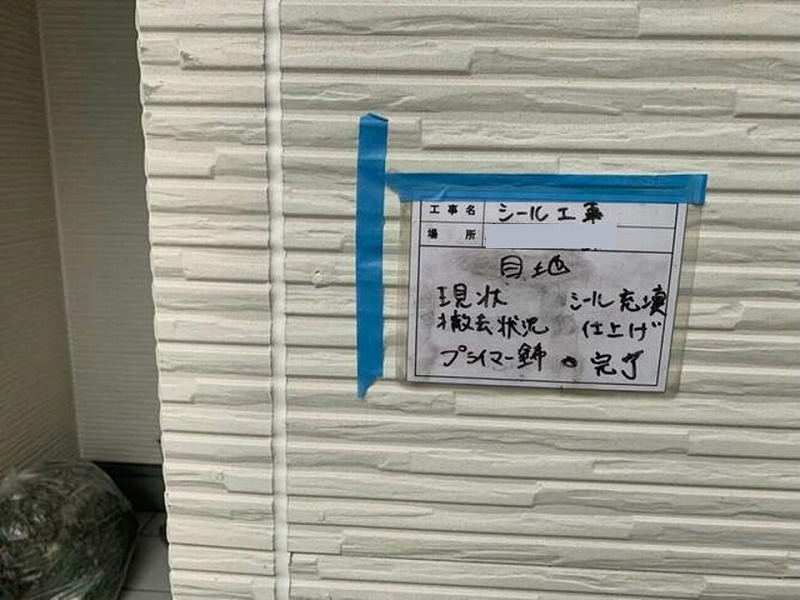 工事名 シール工事
場所
目地
現状 シール充填
撤去状況 仕上げ
プライマー 完了